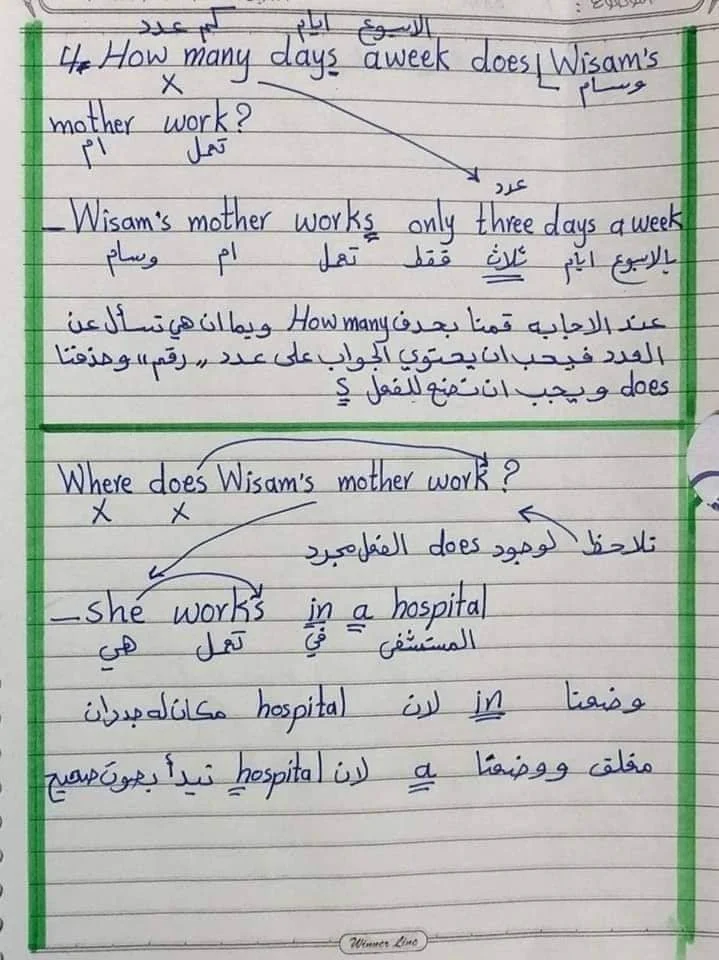 الموضوع :
كم عدد ايام الاسبوع
4. How many days aweek does Wisam's
x وسام
mother work?
ام تعمل
عدد
_ Wisam's mother works only three days a week
وسام ام تعمل فقط ثلاث ايام بالاسبوع
عند الاجابه قمنا بحذف How many وبما ان هي تسأل عن
العدد فيجب ان يحتوي الجواب على عدد ,,رقم,, وحذفنا
does ويجب ان نضع للفعل s
Where does Wisam's mother work ?
x x
نلاحظ لوجود does الفعل مجرد
_ she works in a hospital
هي تعمل في المستشفى
وضعنا in لان hospital مكان له جدران
مغلق ووضعنا a لان hospital تبدأ بصوت صحيح
Winner Line